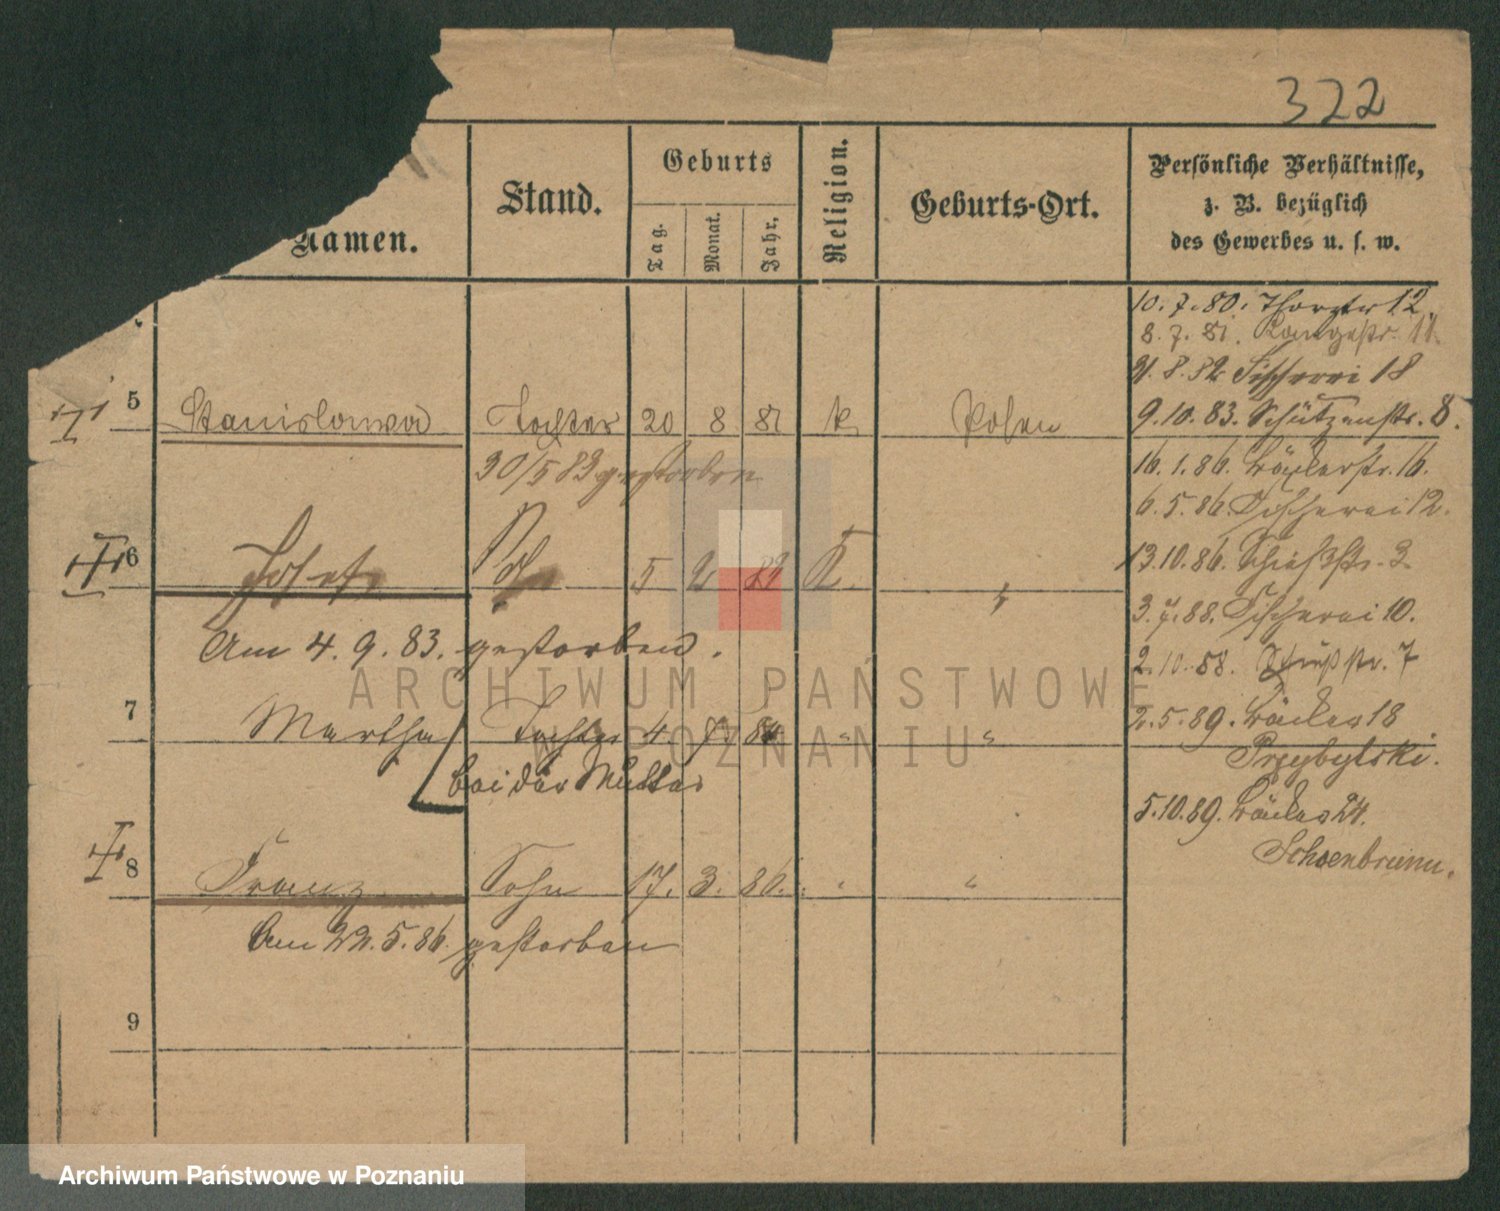 322
Namen.
Stand.
Geburts
Tag.
Monat.
Jahr.
Religion.
Geburts-Ort.
Persönliche Verhältnisse,
z. B. bezüglich
des Gewerbes u. s. w.
10. 7. 80. Thorstr 12
8. 7. 81. Langestr. 11.
21. 8. 82 Fischerei 18
5 Stanislawa Tochter 20 8 81 k Posen
9. 10. 83. Schützenstr. 8.
30/5 83 gestorben
16. 1. 86. Bäckerstr. 16.
6. 5. 86. Fischerei 12.
6 Josef 5 2 83 K.
13. 10. 86. Schießstr. 3
3. 7. 88. Fischerei 10.
Am 4. 9. 83. gestorben.
2. 10. 88. Schießstr. 7
7 Martha Tochter 4. 7. 84 " "
2. 5. 89. Bäcker 18
Przybylski.
bei der Mutter
5. 10. 89. Bäcker 24.
Schoenbrunn.
8 Franz Sohn 17. 3. 86. " "
Am 22. 5. 86. gestorben
9
ARCHIWUM PAŃSTWOWE
W POZNANIU
Archiwum Państwowe w Poznaniu